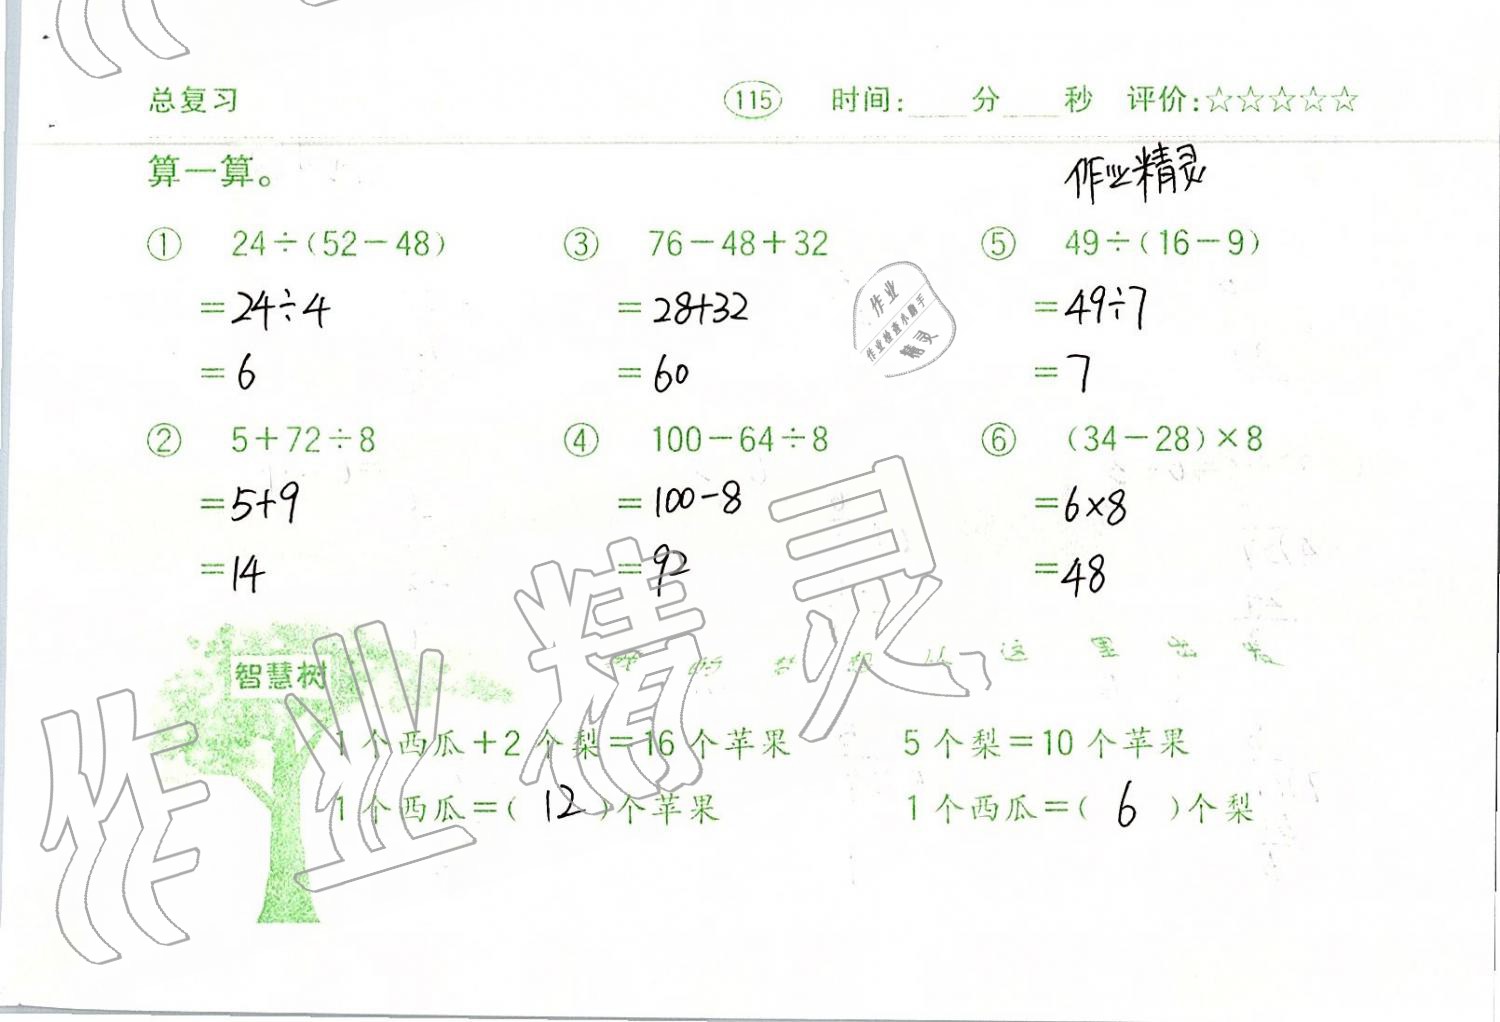 总复习 115 时间:____分____秒 评价:☆☆☆☆☆
算一算。 作业精灵
① 24÷(52-48) ③ 76-48+32 ⑤ 49÷(16-9)
=24÷4 =28+32 =49÷7
=6 =60 =7
② 5+72÷8 ④ 100-64÷8 ⑥ (34-28)×8
=5+9 =100-8 =6×8
=14 =92 =48
作业
作业检查小助手
精灵
智慧树
1个西瓜+2个梨=16个苹果 5个梨=10个苹果
1个西瓜=( 12 )个苹果 1个西瓜=( 6 )个梨
作业精灵